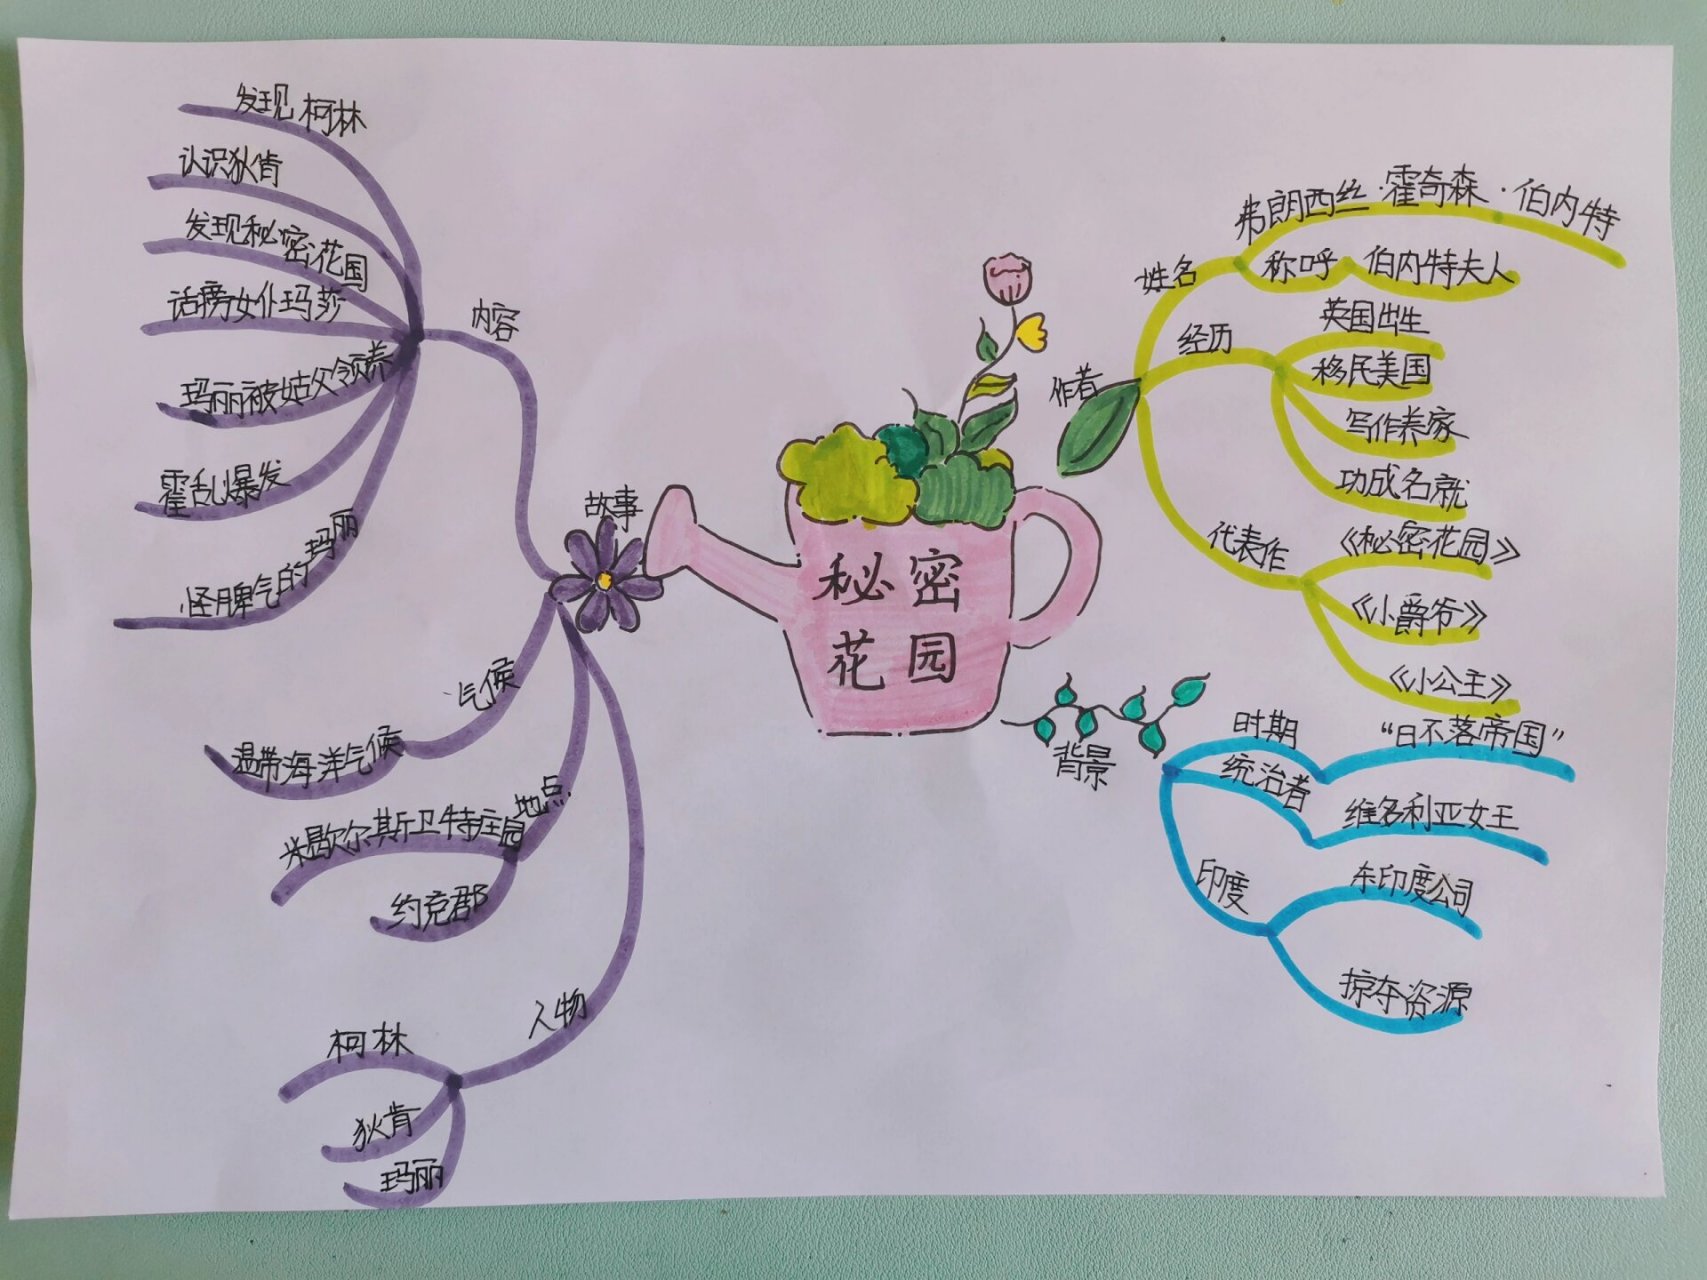 秘密
花园
作者
姓名
弗朗西丝·霍奇森·伯内特
称呼
伯内特夫人
经历
英国出生
移民美国
写作养家
功成名就
代表作
《秘密花园》
《小爵爷》
《小公主》
背景
时期
“日不落帝国”
统治者
维多利亚女王
印度
东印度公司
掠夺资源
故事
内容
发现柯林
认识狄肯
发现秘密花园
话痨女仆玛莎
玛丽被姑父领养
霍乱爆发
怪脾气的玛丽
气候
温带海洋气候
地点
米歇尔斯卫特庄园
约克郡
人物
柯林
狄肯
玛丽